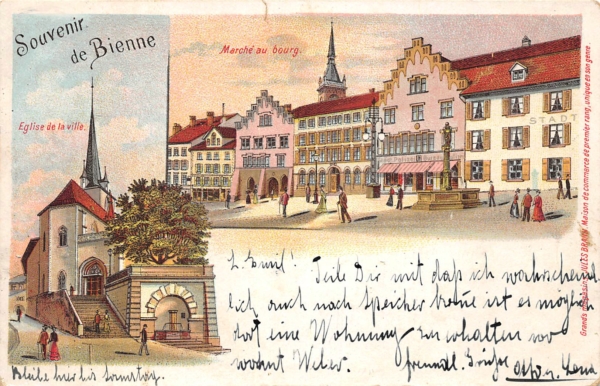 Souvenir
de Bienne
Marché au bourg.
Eglise de la ville.
STADT
Grands magasins JULES BRANN Maison de commerce de premier rang, unique en son genre.
L. Emil! Teile Dir mit daß ich wahrschein
lich auch nach Speicher komme ist es möglich
dort eine Wohnung zu erhalten wo
wohnt Weber. freundl. Grüße
Bleibe hier bis Samstag.